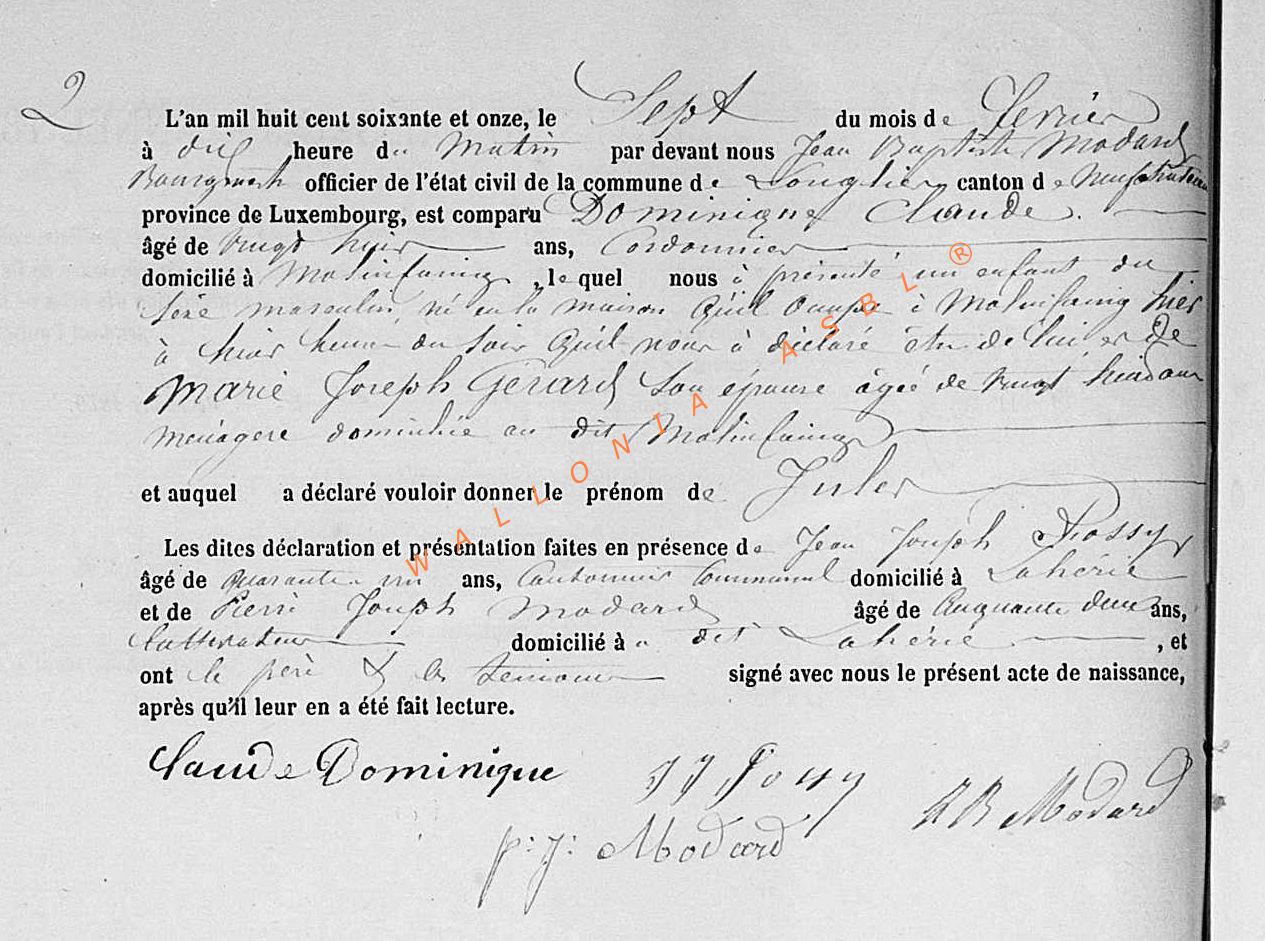 2
L'an mil huit cent soixante et onze, le Sept du mois de fevrier
à dix heure du Matin par devant nous Jean Baptiste Modard
Bourgmestre officier de l'état civil de la commune de Longlier, canton de Neufchateau
province de Luxembourg, est comparu Dominique Claude.
âgé de vingt huit ans, Cordonnier
domicilié à Molinfaing, le quel nous à présenté un enfant du
sexe masculin, né en la maison qu'il occupe à Molinfaing hier
à huit heure du soir qu'il nous à déclaré être de lui et de
Marie Joseph Gérard son épouse âgée de vingt huit ans
menagere domiciliée au dit Molinfaing
et auquel a déclaré vouloir donner le prénom de Jules
Les dites déclaration et présentation faites en présence de Jean Joseph
âgé de quarante un ans, Cantonnier Communal domicilié à Lahérie
et de Pierre Joseph Modard âgé de cinquante deux ans,
Cultivateur domicilié à dit Lahérie, et
ont le père & les temoins signé avec nous le présent acte de naissance,
après qu'il leur en a été fait lecture.
Claude Dominique
JB Modard
p: j: Modard
WALLONIA ASBL ®